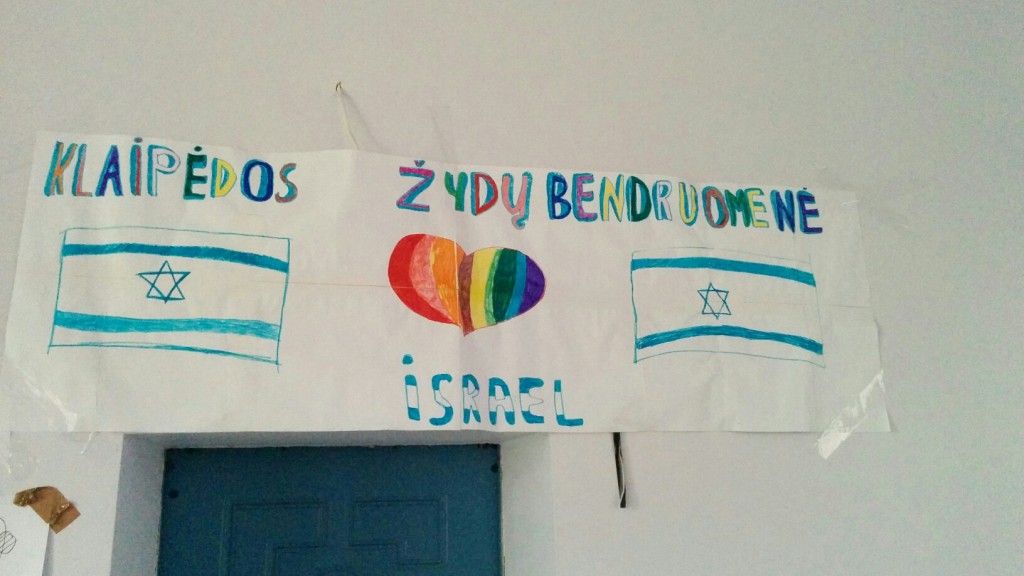 KLAİPĖDOS ŽYDŲ BENDRUOMENĖ
İSRAEL